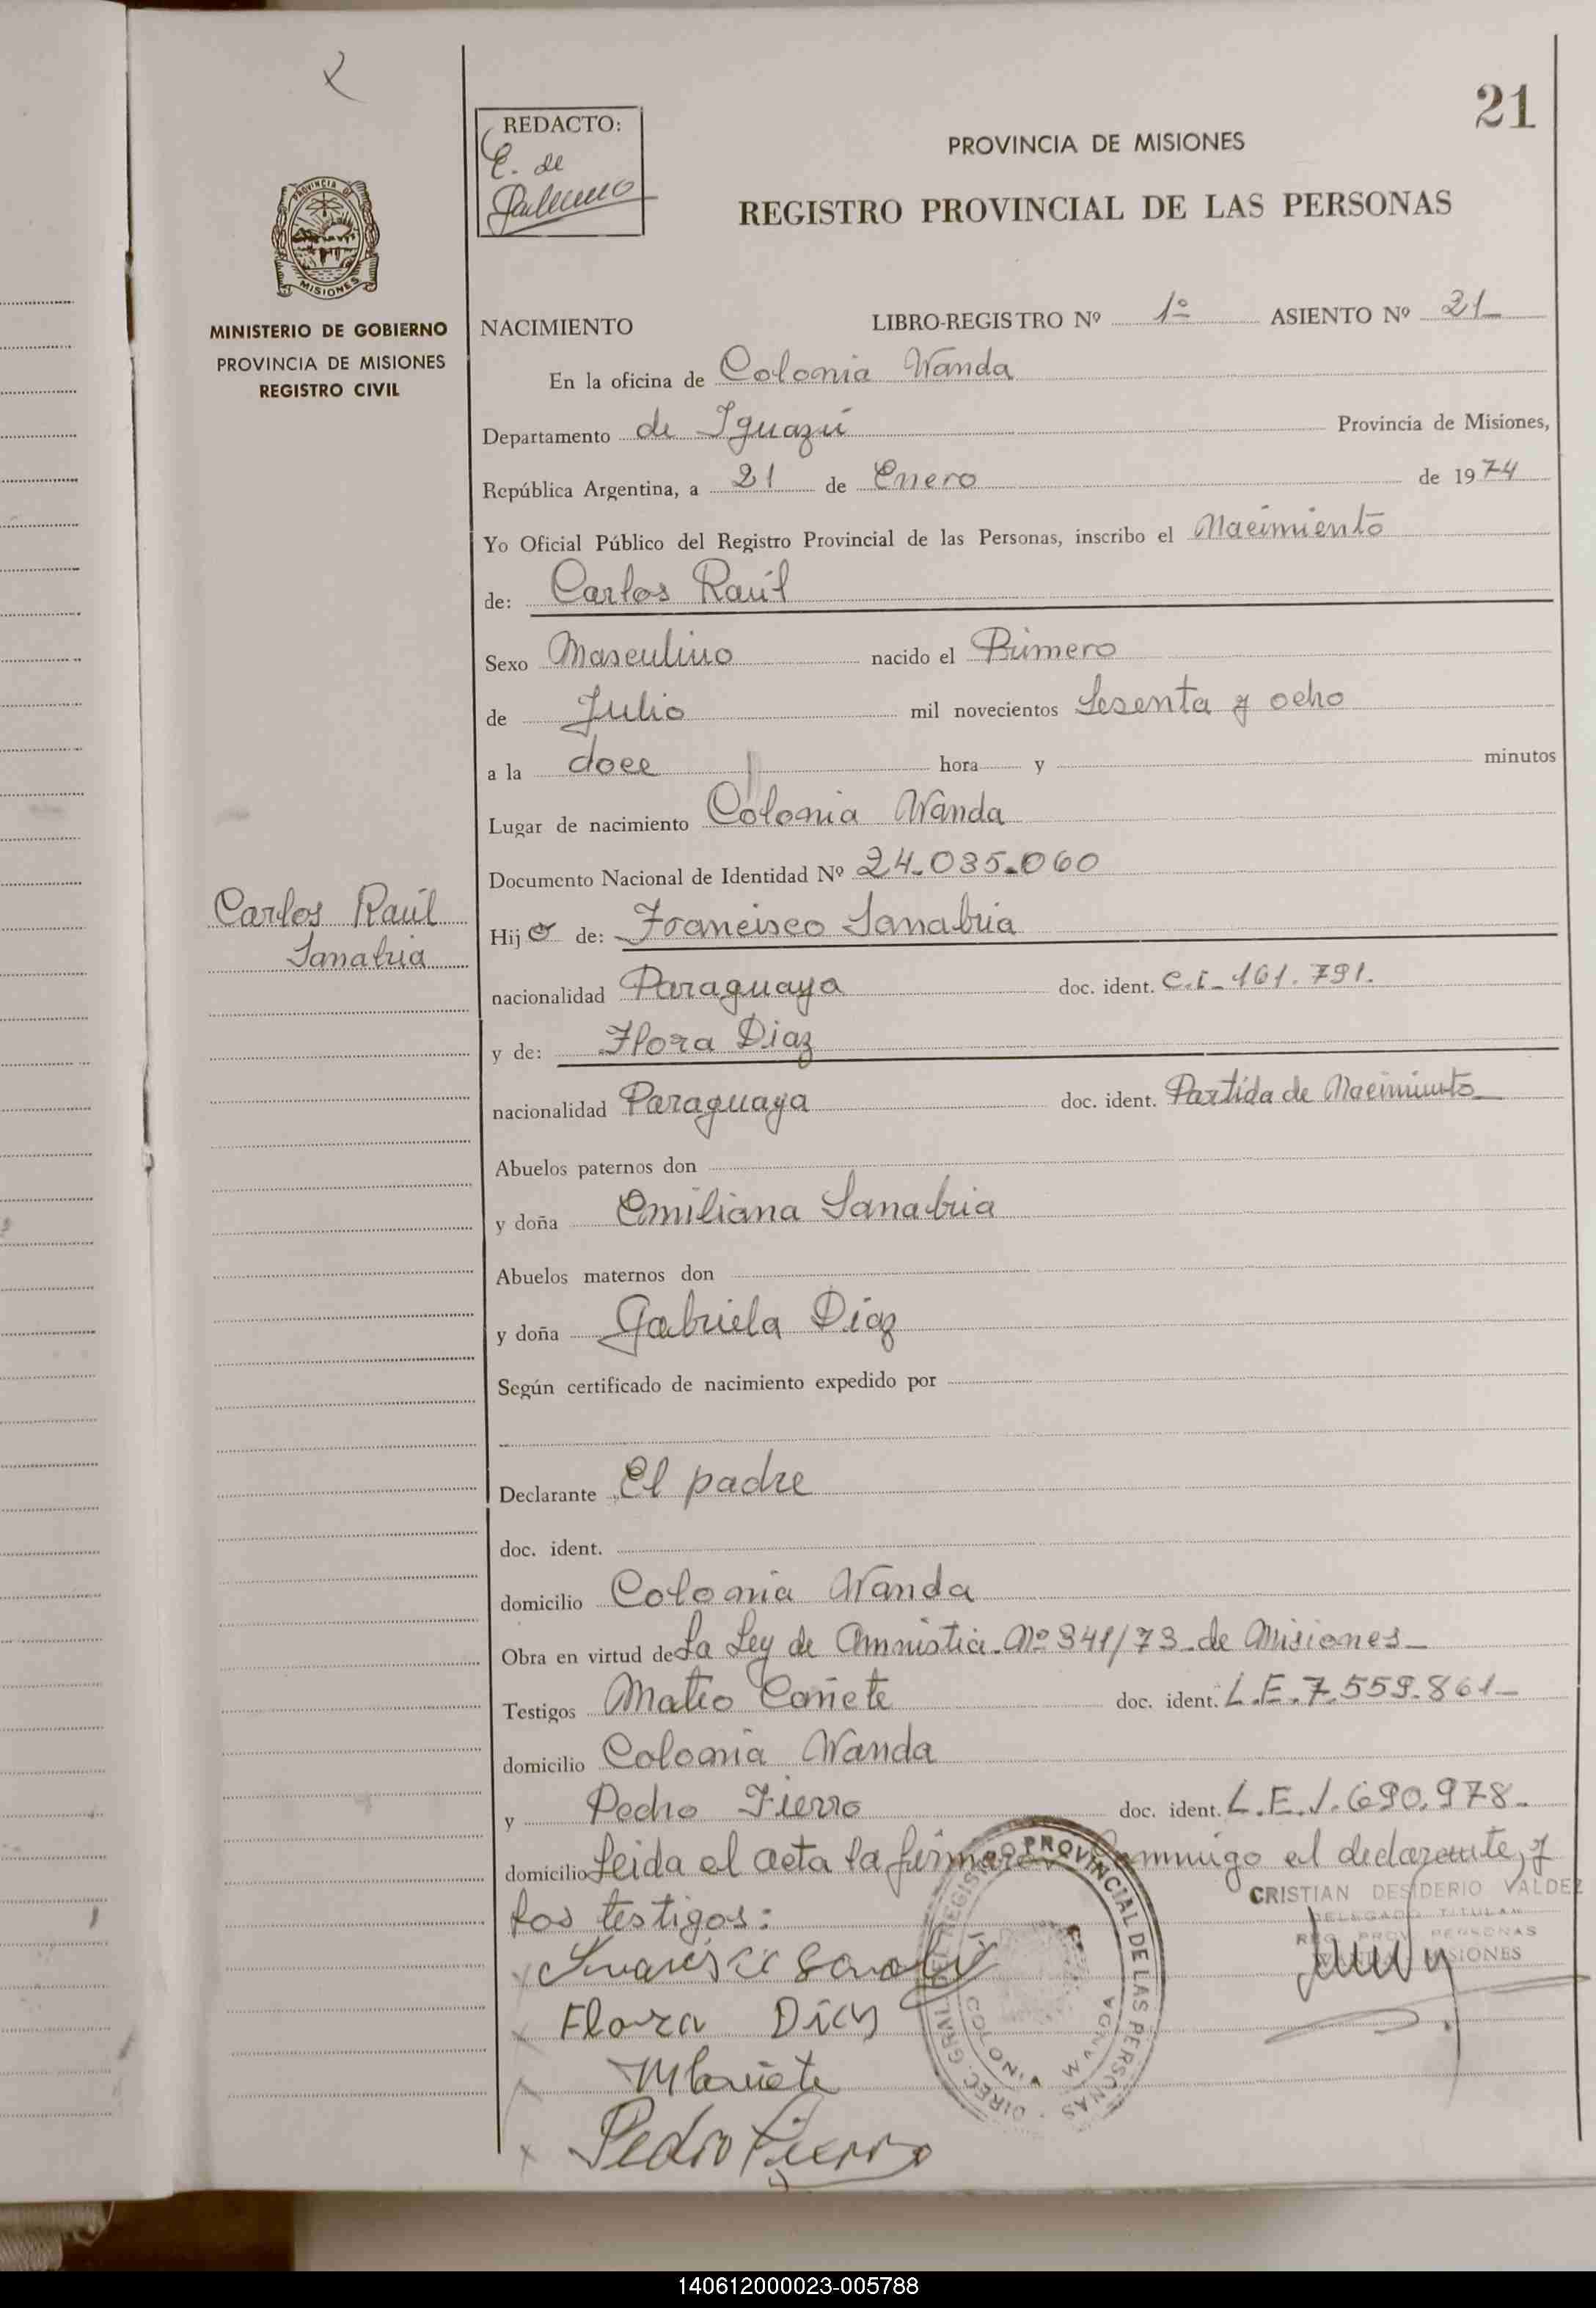 21
REDACTO:
E. de
PROVINCIA DE MISIONES
REGISTRO PROVINCIAL DE LAS PERSONAS
PROVINCIA DE
MISIONES
MINISTERIO DE GOBIERNO
PROVINCIA DE MISIONES
REGISTRO CIVIL
NACIMIENTO LIBRO-REGISTRO Nº 1º ASIENTO Nº 21
En la oficina de Colonia Wanda
Departamento de Iguazú Provincia de Misiones,
República Argentina, a 21 de Enero de 1974
Yo Oficial Público del Registro Provincial de las Personas, inscribo el Nacimiento
de: Carlos Raúl
Sexo Masculino nacido el Primero
de Julio mil novecientos Sesenta y ocho
a la doce hora y minutos
Lugar de nacimiento Colonia Wanda
Documento Nacional de Identidad Nº 24.035.060
Carlos Raúl
Sanabria
Hijo de: Francisco Sanabria
nacionalidad Paraguaya doc. ident. C.I. 161.791.
y de: Flora Diaz
nacionalidad Paraguaya doc. ident. Partida de Nacimiento
Abuelos paternos don
y doña Emiliana Sanabria
Abuelos maternos don
y doña Gabriela Diaz
Según certificado de nacimiento expedido por
Declarante El padre
doc. ident.
domicilio Colonia Wanda
Obra en virtud de La Ley de Amnistia Nº 341/73 de Misiones
Testigos Mateo Cañete doc. ident. L.E. 7.559.861
domicilio Colonia Wanda
y Pedro Fierro doc. ident. L.E. 1.690.978.
domicilio Leida el acta la firmaron conmigo el declarante, y
los testigos:
CRISTIAN DESIDERIO VALDEZ
DELEGADO TITULAR
REG. PROV. PERSONAS
MISIONES
DIREC. GRAL. DEL REGISTRO PROVINCIAL DE LAS PERSONAS
COLONIA WANDA
Flora Diaz
MCañete
Pedro Fierro
140612000023-005788